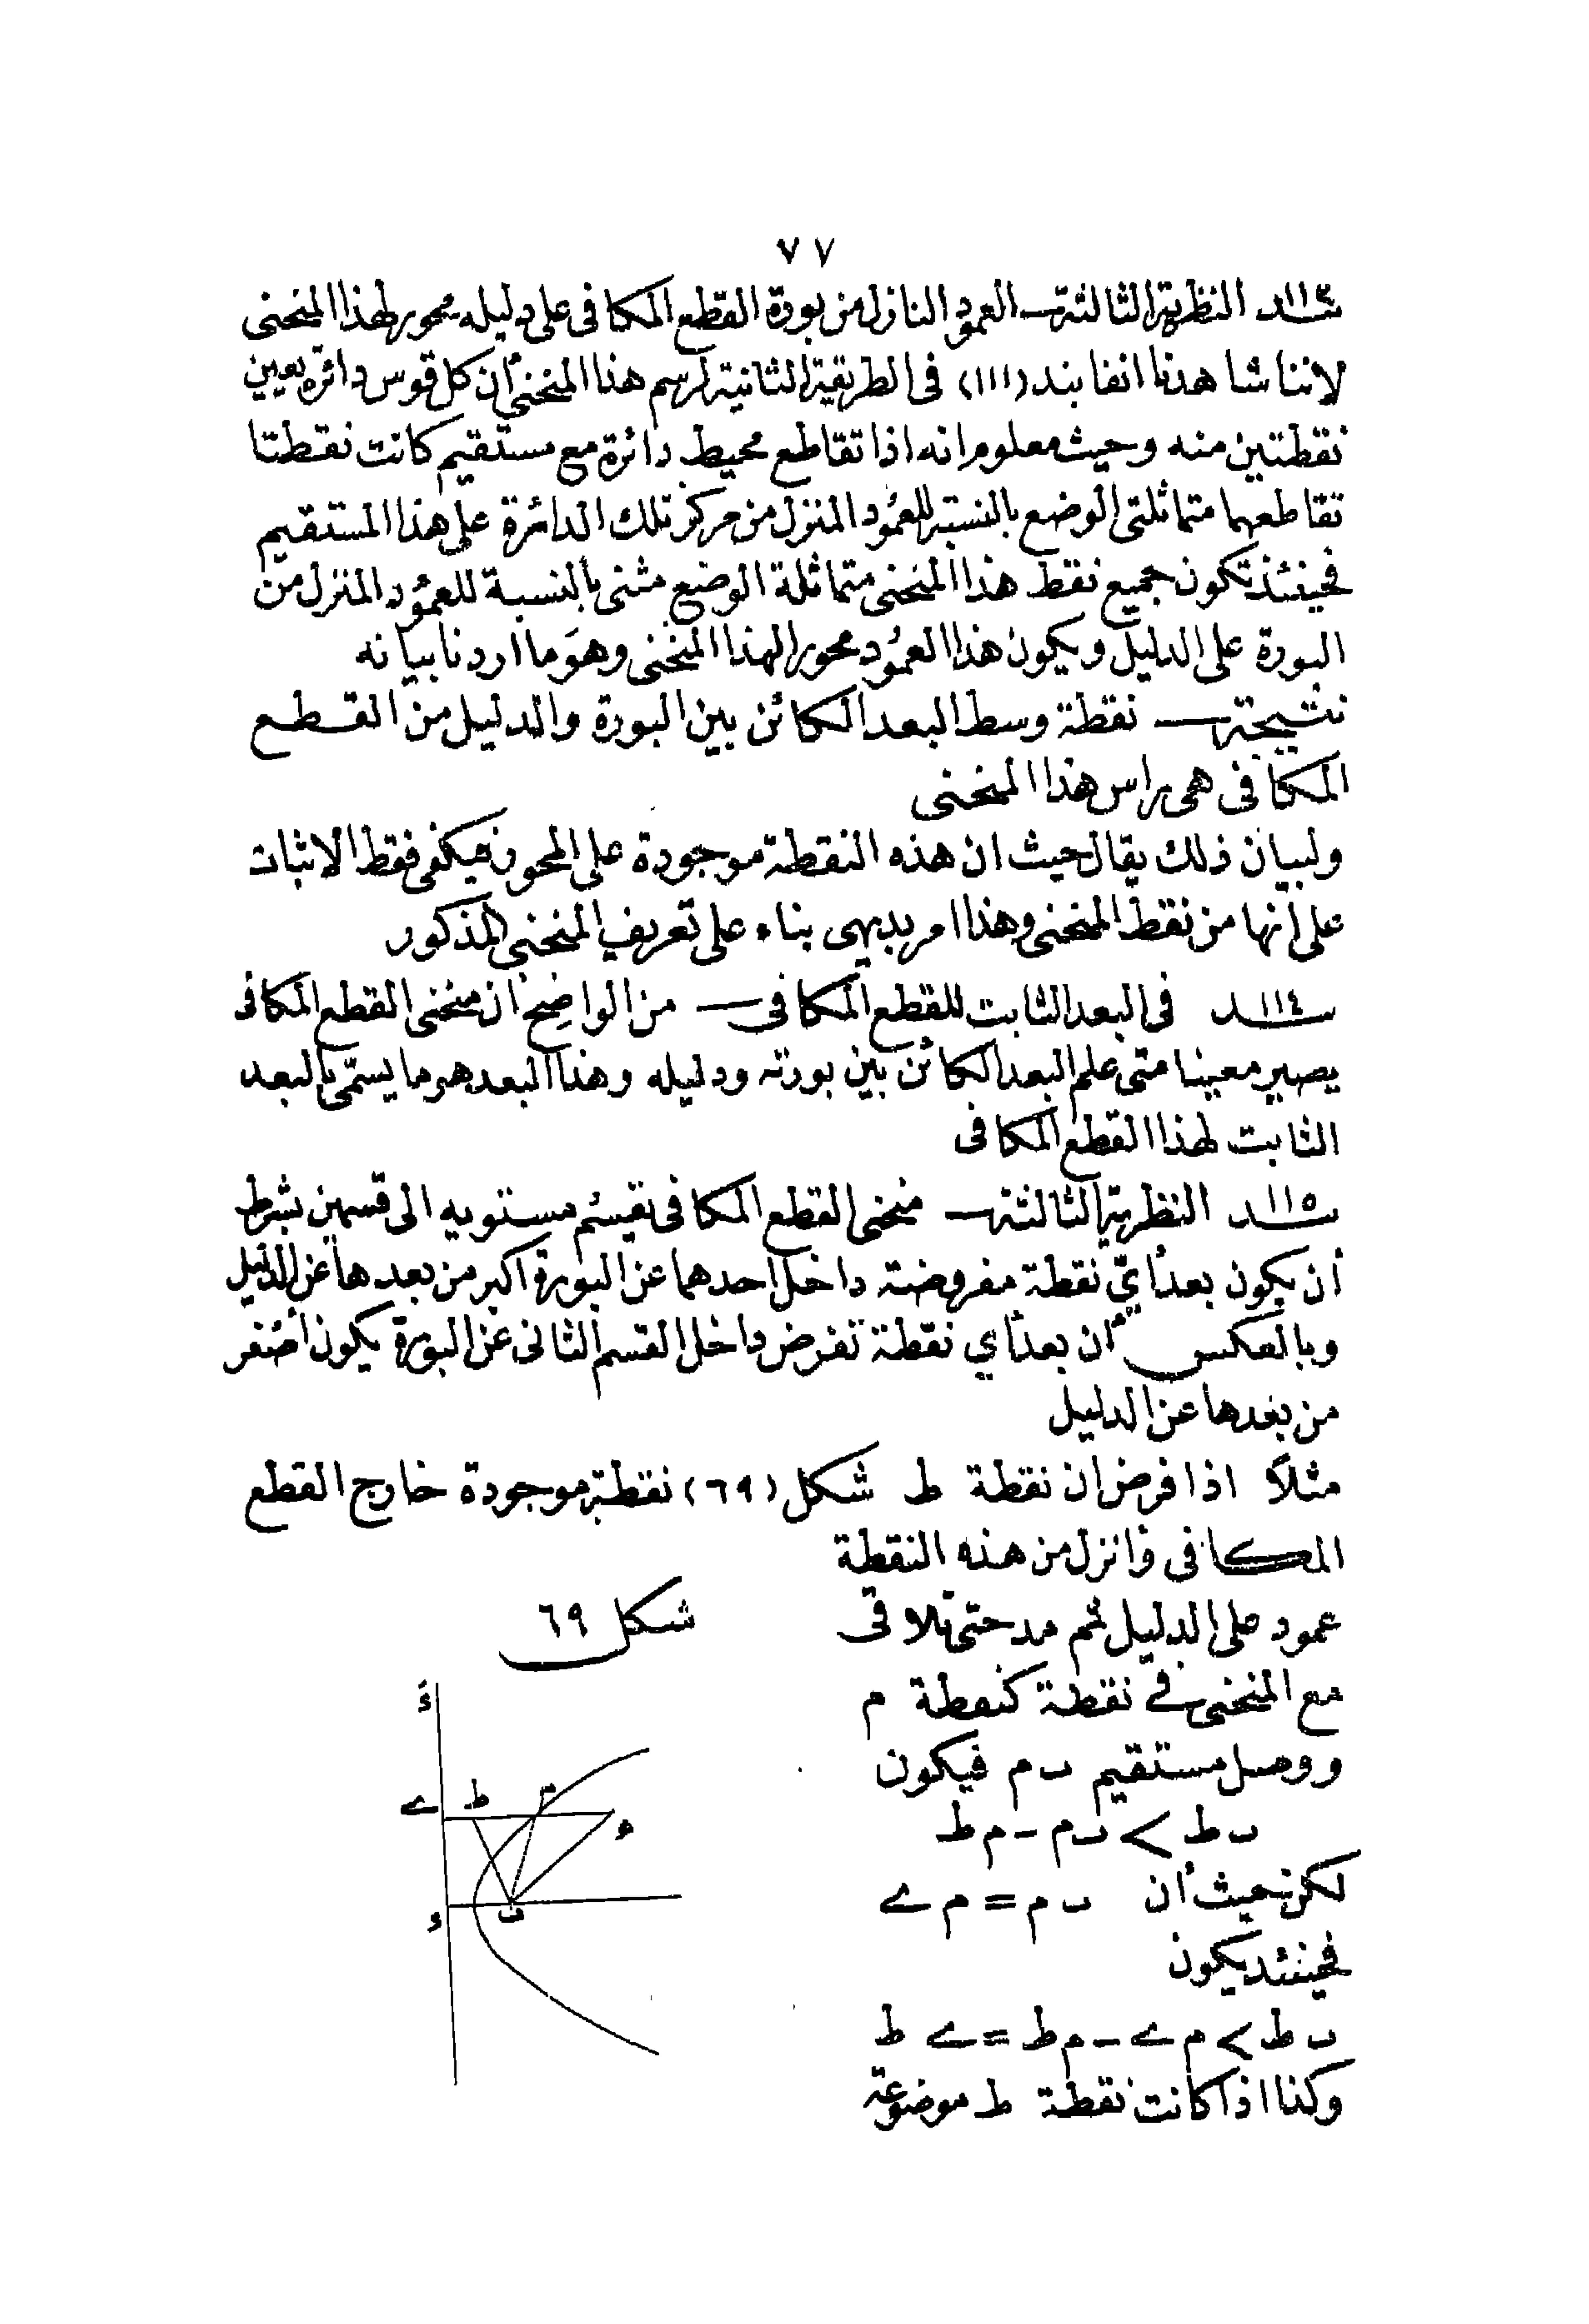 ٧٧
بند١١٣ النظرية الثالثة ـ العمود النازل من بورة القطع المكافى على دليله محور لهذا المنحنى
لاننا شاهدنا انفا بند (١١١) فى الطريقة الثانية لرسم هذا المنحنى أن كل قوس دائرة يعين
نقطتين منه وحيث معلوم انه اذا تقاطع محيط دائرة مع مستقيم كانت نقطتا
تقاطعهما متماثلتى الوضع بالنسبة للعمود المنزل من مركز تلك الدائرة على هذا المستقيم
فحينئذ تكون جميع نقط هذا المنحنى متماثلة الوضع مثنى بالنسبة للعمود المنزل من
البورة على الدليل ويكون هذا العمود محورا لهذا المنحنى وهو ما اردنا بيانه
نتيجة ـ نقطة وسط البعد الكائن بين البورة والدليل من القطع
المكافى هى راس هذا المنحنى
ولبيان ذلك يقال حيث ان هذه النقطة موجودة على المحور فيكفى فقط الاثبات
على أنها من نقط المنحنى وهذا امر بديهى بناء على تعريف المنحنى المذكور
بند١١٤ فى البعد الثابت للقطع المكافى ـ من الواضح أن منحنى القطع المكافى
يصير معينا متى علم البعد الكائن بين بورته ودليله وهذا البعد هو ما يسمى بالبعد
الثابت لهذا القطع المكافى
بند١١٥ النظرية الثالثة ـ منحنى القطع المكافى يقسم مستويه الى قسمين بشرط
أن يكون بعد أيّ نقطة مفروضة داخل احدهما عن البورة اكبر من بعدها عن الدليل
وبالعكس أن بعد أي نقطة تفرض داخل القسم الثانى عن البورة يكون أصغر
من بعدها عن الدليل
مثلاً اذا فرض ان نقطة ط شكل (٦٩) نقطة موجودة خارج القطع
المكافى وانزل من هذه النقطة
عمود على الدليل ثم مد حتى تلاقى
مع المنحنى فے نقطة كنقطة م
ووصل مستقيم ب م فيكون
ب ط > ب م - م ط
لكن حيث أن ب م = م ے
فحينئذ يكون
ب ط > م ے - م ط = ے ط
وكذا اذا كانت نقطة ط موضوعة
شكل ٦٩
ءَ
ے ط م
ء
ء ب